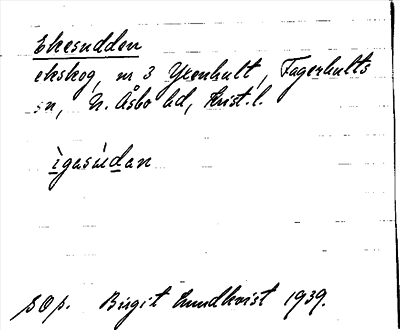 Ekesudden
ekskog, nr 3 Yxenhult, Fagerhults
sn, N. Åsbo hd, Krist. l.
ìgəsúdən
SOp. Birgit Lundkvist 1939.